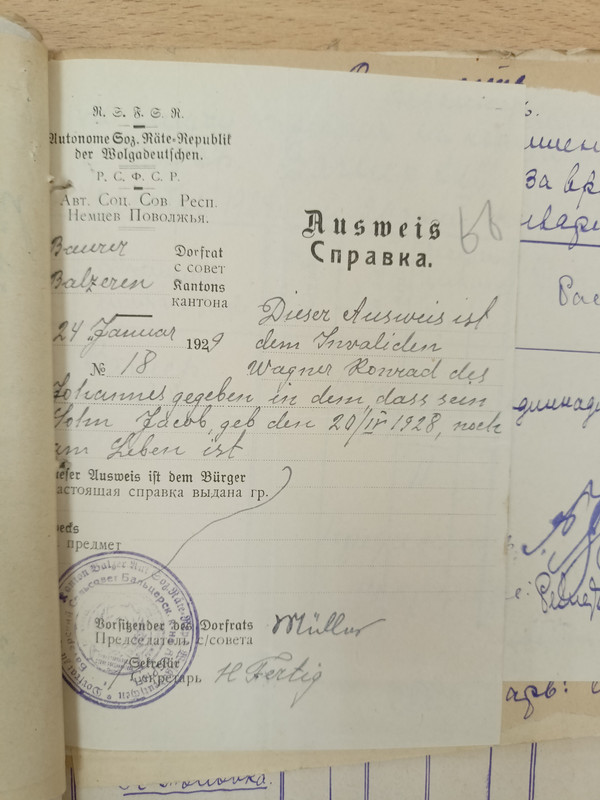 R. S. F. S. R.
Autonome Soz. Räte-Republik
der Wolgadeutschen.
Р. С. Ф. С. Р.
Авт. Соц. Сов Респ.
Немцев Поволжья.
Ausweis
Справка.
Baurer Dorfrat
с совет
Balzeren Kantons
кантона
24 Januar 1929
№ 18
Dieser Ausweis ist
dem Invaliden
Wagner Konrad des
Johannes gegeben in dem, dass sein
Sohn Jacob, geb den 20/IV 1928, noch
am Leben ist
ieser Ausweis ist dem Bürger
астоящая справка выдана гр.
ecks
предмет
Vorsitzender des Dorfrats Müller
Председатель с/совета
Sekretär
секретарь H Fertig
за вр